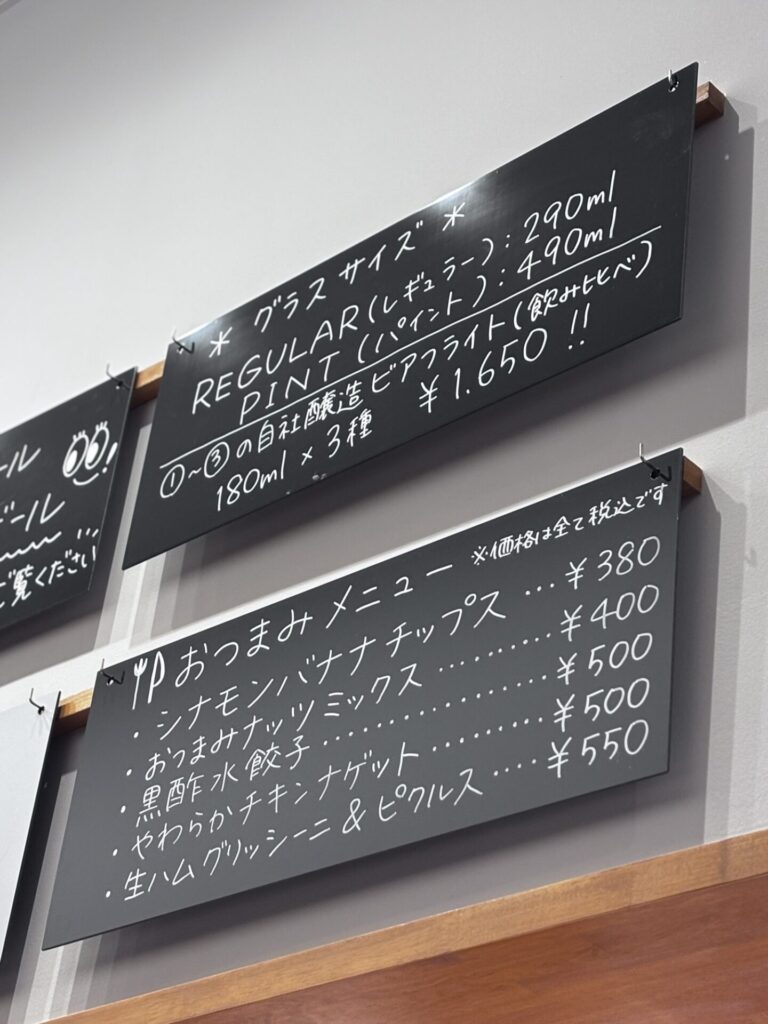 ＊ グラスサイズ ＊
REGULAR(レギュラー) : 290ml
PINT (パイント) : 490ml
①～③の自社醸造 ビアフライト(飲み比べ)
180ml × 3種 ￥1.650 !!
ール
ビール
ご覧ください
おつまみメニュー ※価格は全て税込です
・シナモンバナナチップス … ￥380
・おつまみナッツミックス ……… ￥400
・黒酢水餃子 …………… ￥500
・やわらかチキンナゲット ……… ￥500
・生ハムグリッシーニ & ピクルス …. ￥550